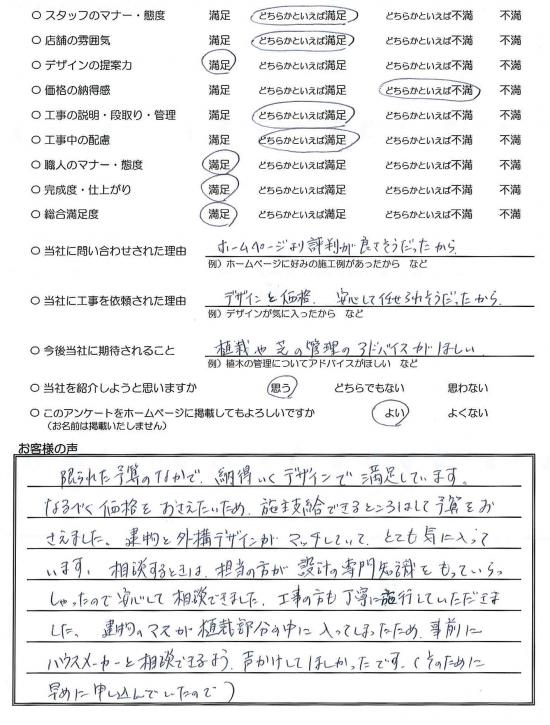 ○ スタッフのマナー・態度 満足 どちらかといえば満足 どちらかといえば不満 不満
○ 店舗の雰囲気 満足 どちらかといえば満足 どちらかといえば不満 不満
○ デザインの提案力 満足 どちらかといえば満足 どちらかといえば不満 不満
○ 価格の納得感 満足 どちらかといえば満足 どちらかといえば不満 不満
○ 工事の説明・段取り・管理 満足 どちらかといえば満足 どちらかといえば不満 不満
○ 工事中の配慮 満足 どちらかといえば満足 どちらかといえば不満 不満
○ 職人のマナー・態度 満足 どちらかといえば満足 どちらかといえば不満 不満
○ 完成度・仕上がり 満足 どちらかといえば満足 どちらかといえば不満 不満
○ 総合満足度 満足 どちらかといえば満足 どちらかといえば不満 不満
○ 当社に問い合わせされた理由 ホームページより評判が良さそうだったから
例）ホームページに好みの施工例があったから など
○ 当社に工事を依頼された理由 デザインと価格、安心して任せられそうだったから.
例）デザインが気に入ったから など
○ 今後当社に期待されること 植栽や芝の管理のアドバイスがほしい
例）植木の管理についてアドバイスがほしい など
○ 当社を紹介しようと思いますか 思う どちらでもない 思わない
○ このアンケートをホームページに掲載してもよろしいですか はい よくない
（お名前は掲載いたしません）
お客様の声
限られた予算のなかで、納得いくデザインで満足しています。
なるべく価格をおさえたいため、施主支給できるところはして予算をお
さえました。建物と外構デザインがマッチしていて、とても気に入って
います。相談するときは、担当の方が設計の専門知識をもっていらっ
しゃったので安心して相談できました。工事の方も丁寧に施行していただきま
した。建物のマスが植栽部分の中に入ってしまったため、事前に
ハウスメーカーと相談できるよう、声かけしてほしかったです。（そのために
早めに申し込んでいたので）